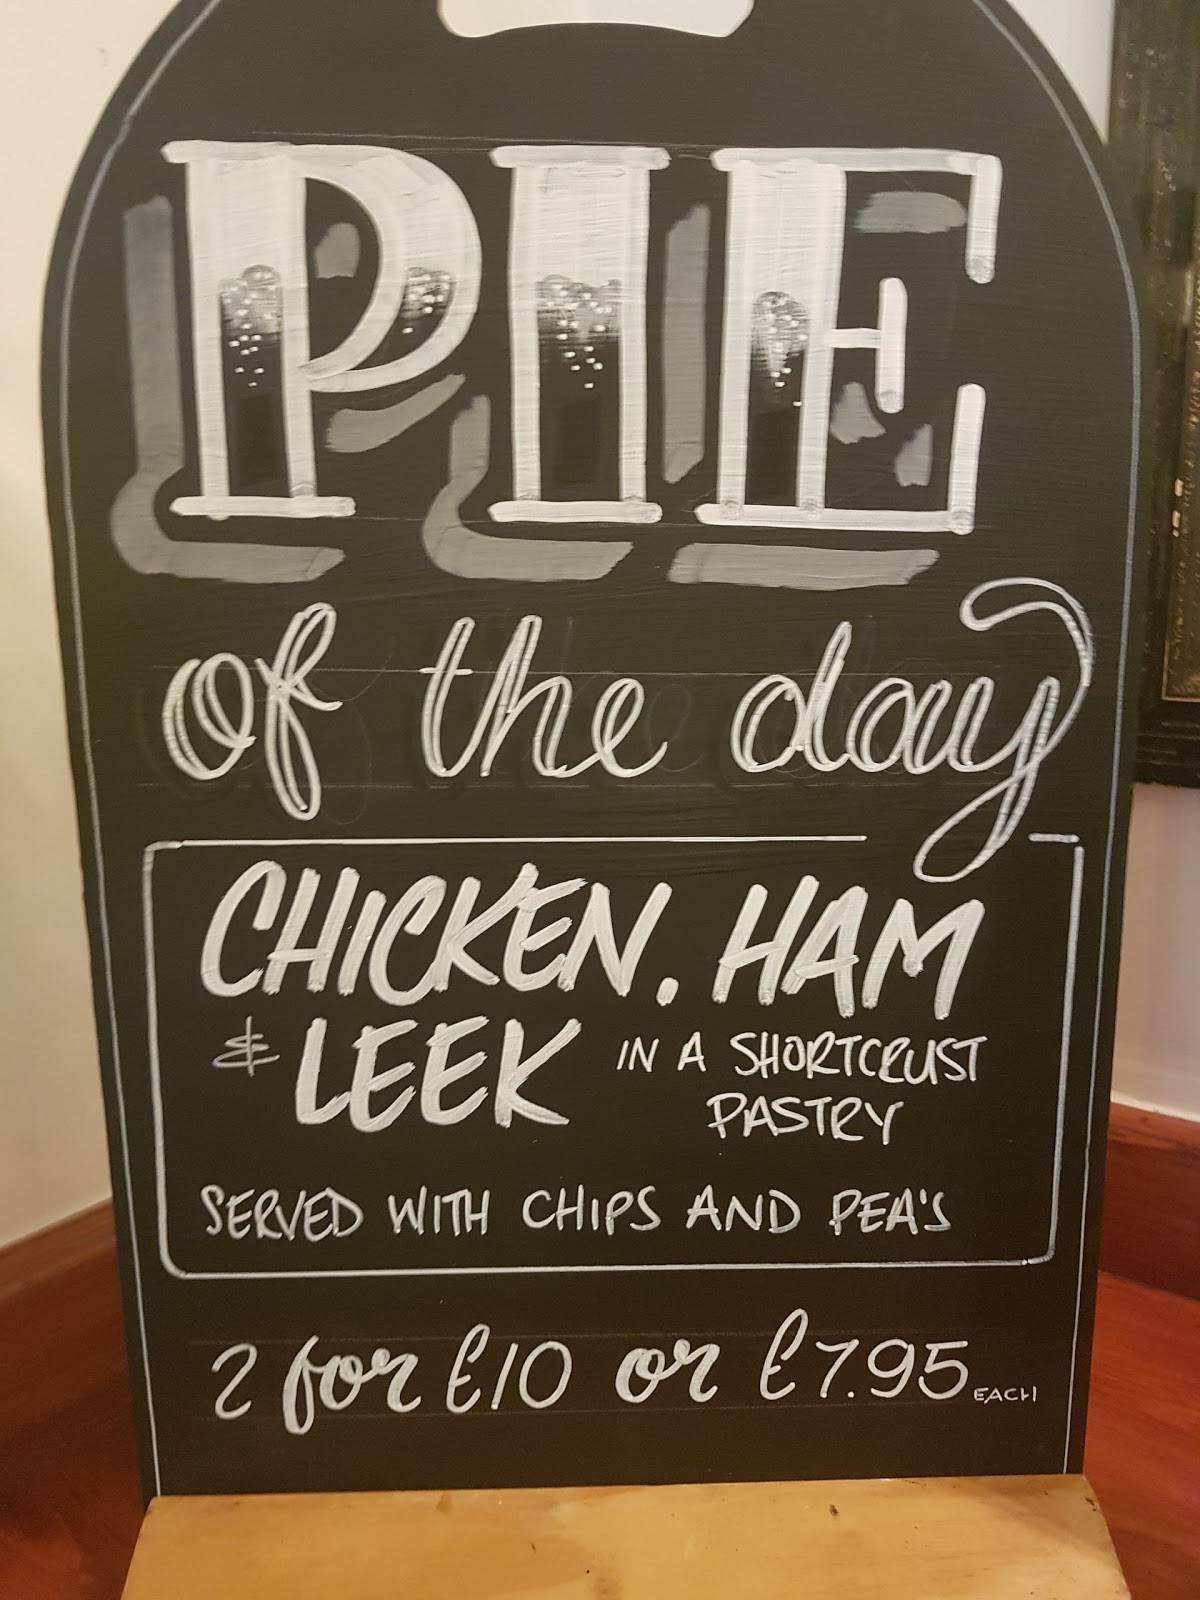 PIE
of the day
CHICKEN. HAM
& LEEK IN A SHORTCRUST
PASTRY
SERVED WITH CHIPS AND PEA'S
2 for £10 or £7.95 EACH